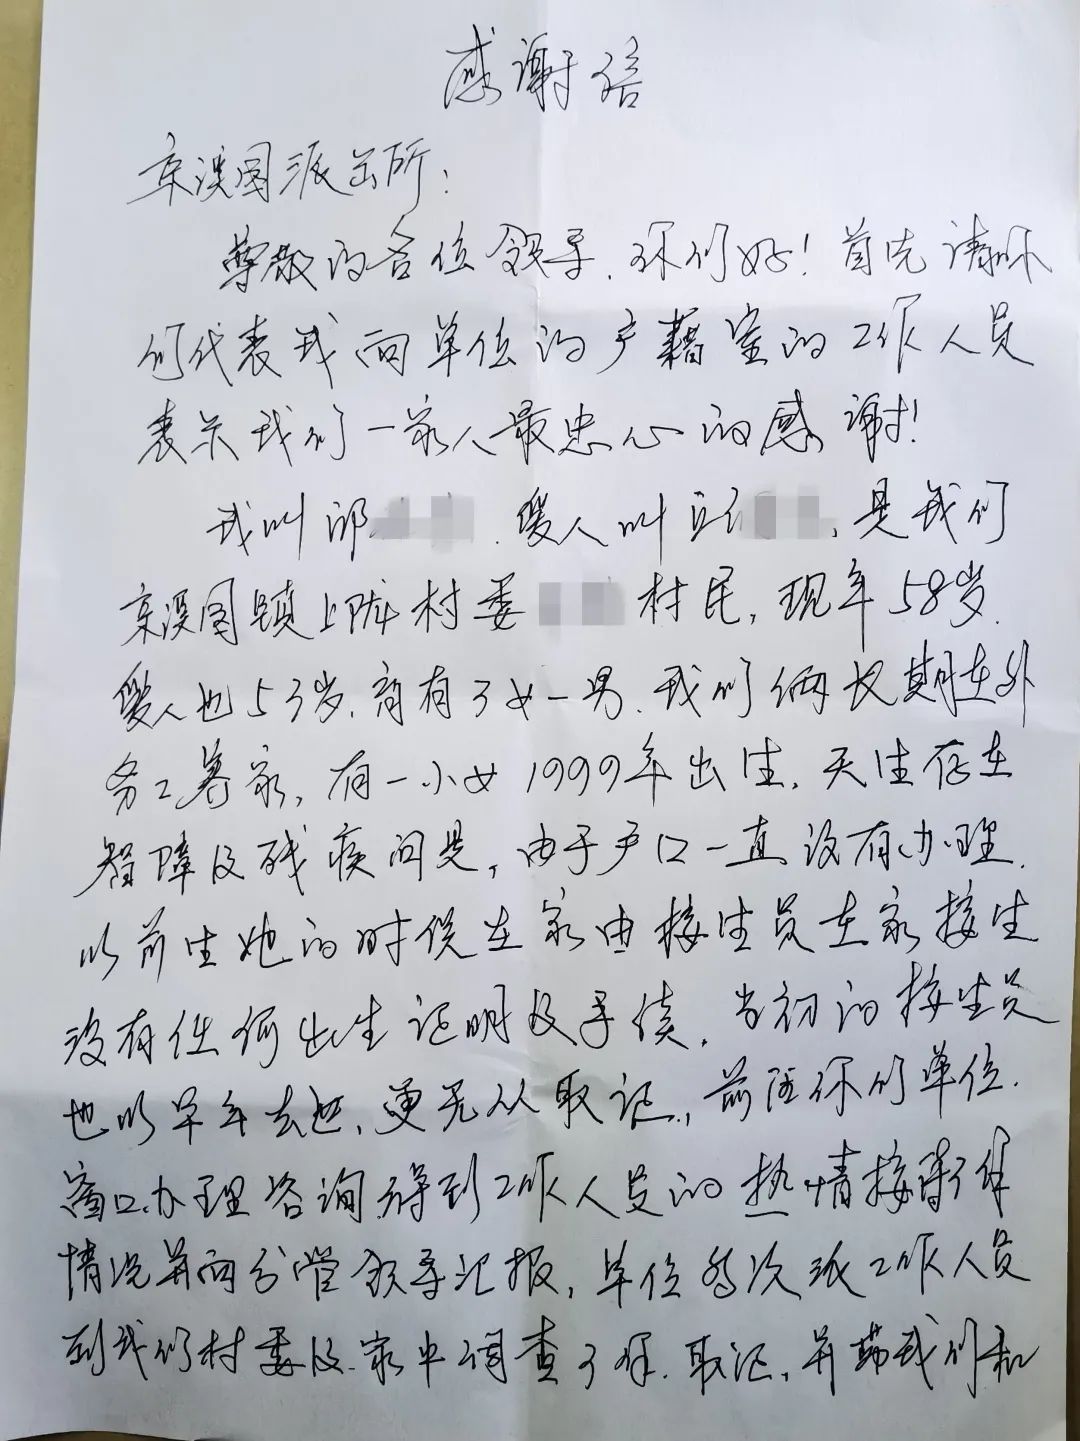 感谢信
京溪园派出所：
尊敬的各位领导，你们好！首先请你
们代表我向单位的户籍室的工作人员
表示我们一家人最忠心的感谢！
我叫邱 ，爱人叫 ，是我们
京溪园镇上陇村委 村民，现年58岁，
爱人也53岁，育有3女一男，我们俩长期在外
务工养家，有一小女1999年出生，天生存在
智障及残疾问题，由于户口一直没有办理，
以前生她的时候在家由接生员在家接生
没有任何出生证明及手续，当初的接生员
也以早年去逝，更无从取证，前陪你们单位
窗口办理咨询得到工作人员的热情接待了解
情况并向分管领导汇报，单位多次派工作人员
到我们村委及家中调查了解、取证，并带我们和